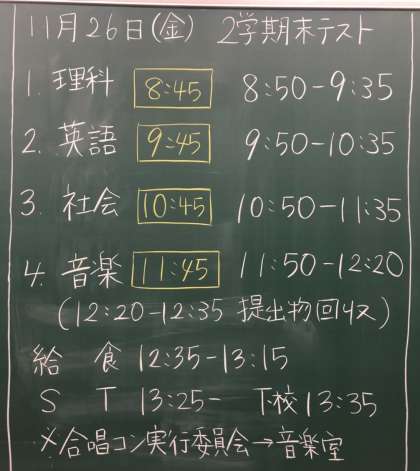 11月26日(金) 2学期末テスト
1. 理科 8:45 8:50-9:35
2. 英語 9:45 9:50-10:35
3. 社会 10:45 10:50-11:35
4. 音楽 11:45 11:50-12:20
(12:20-12:35 提出物回収)
給 食 12:35-13:15
S T 13:25- 下校13:35
※合唱コン実行委員会→音楽室